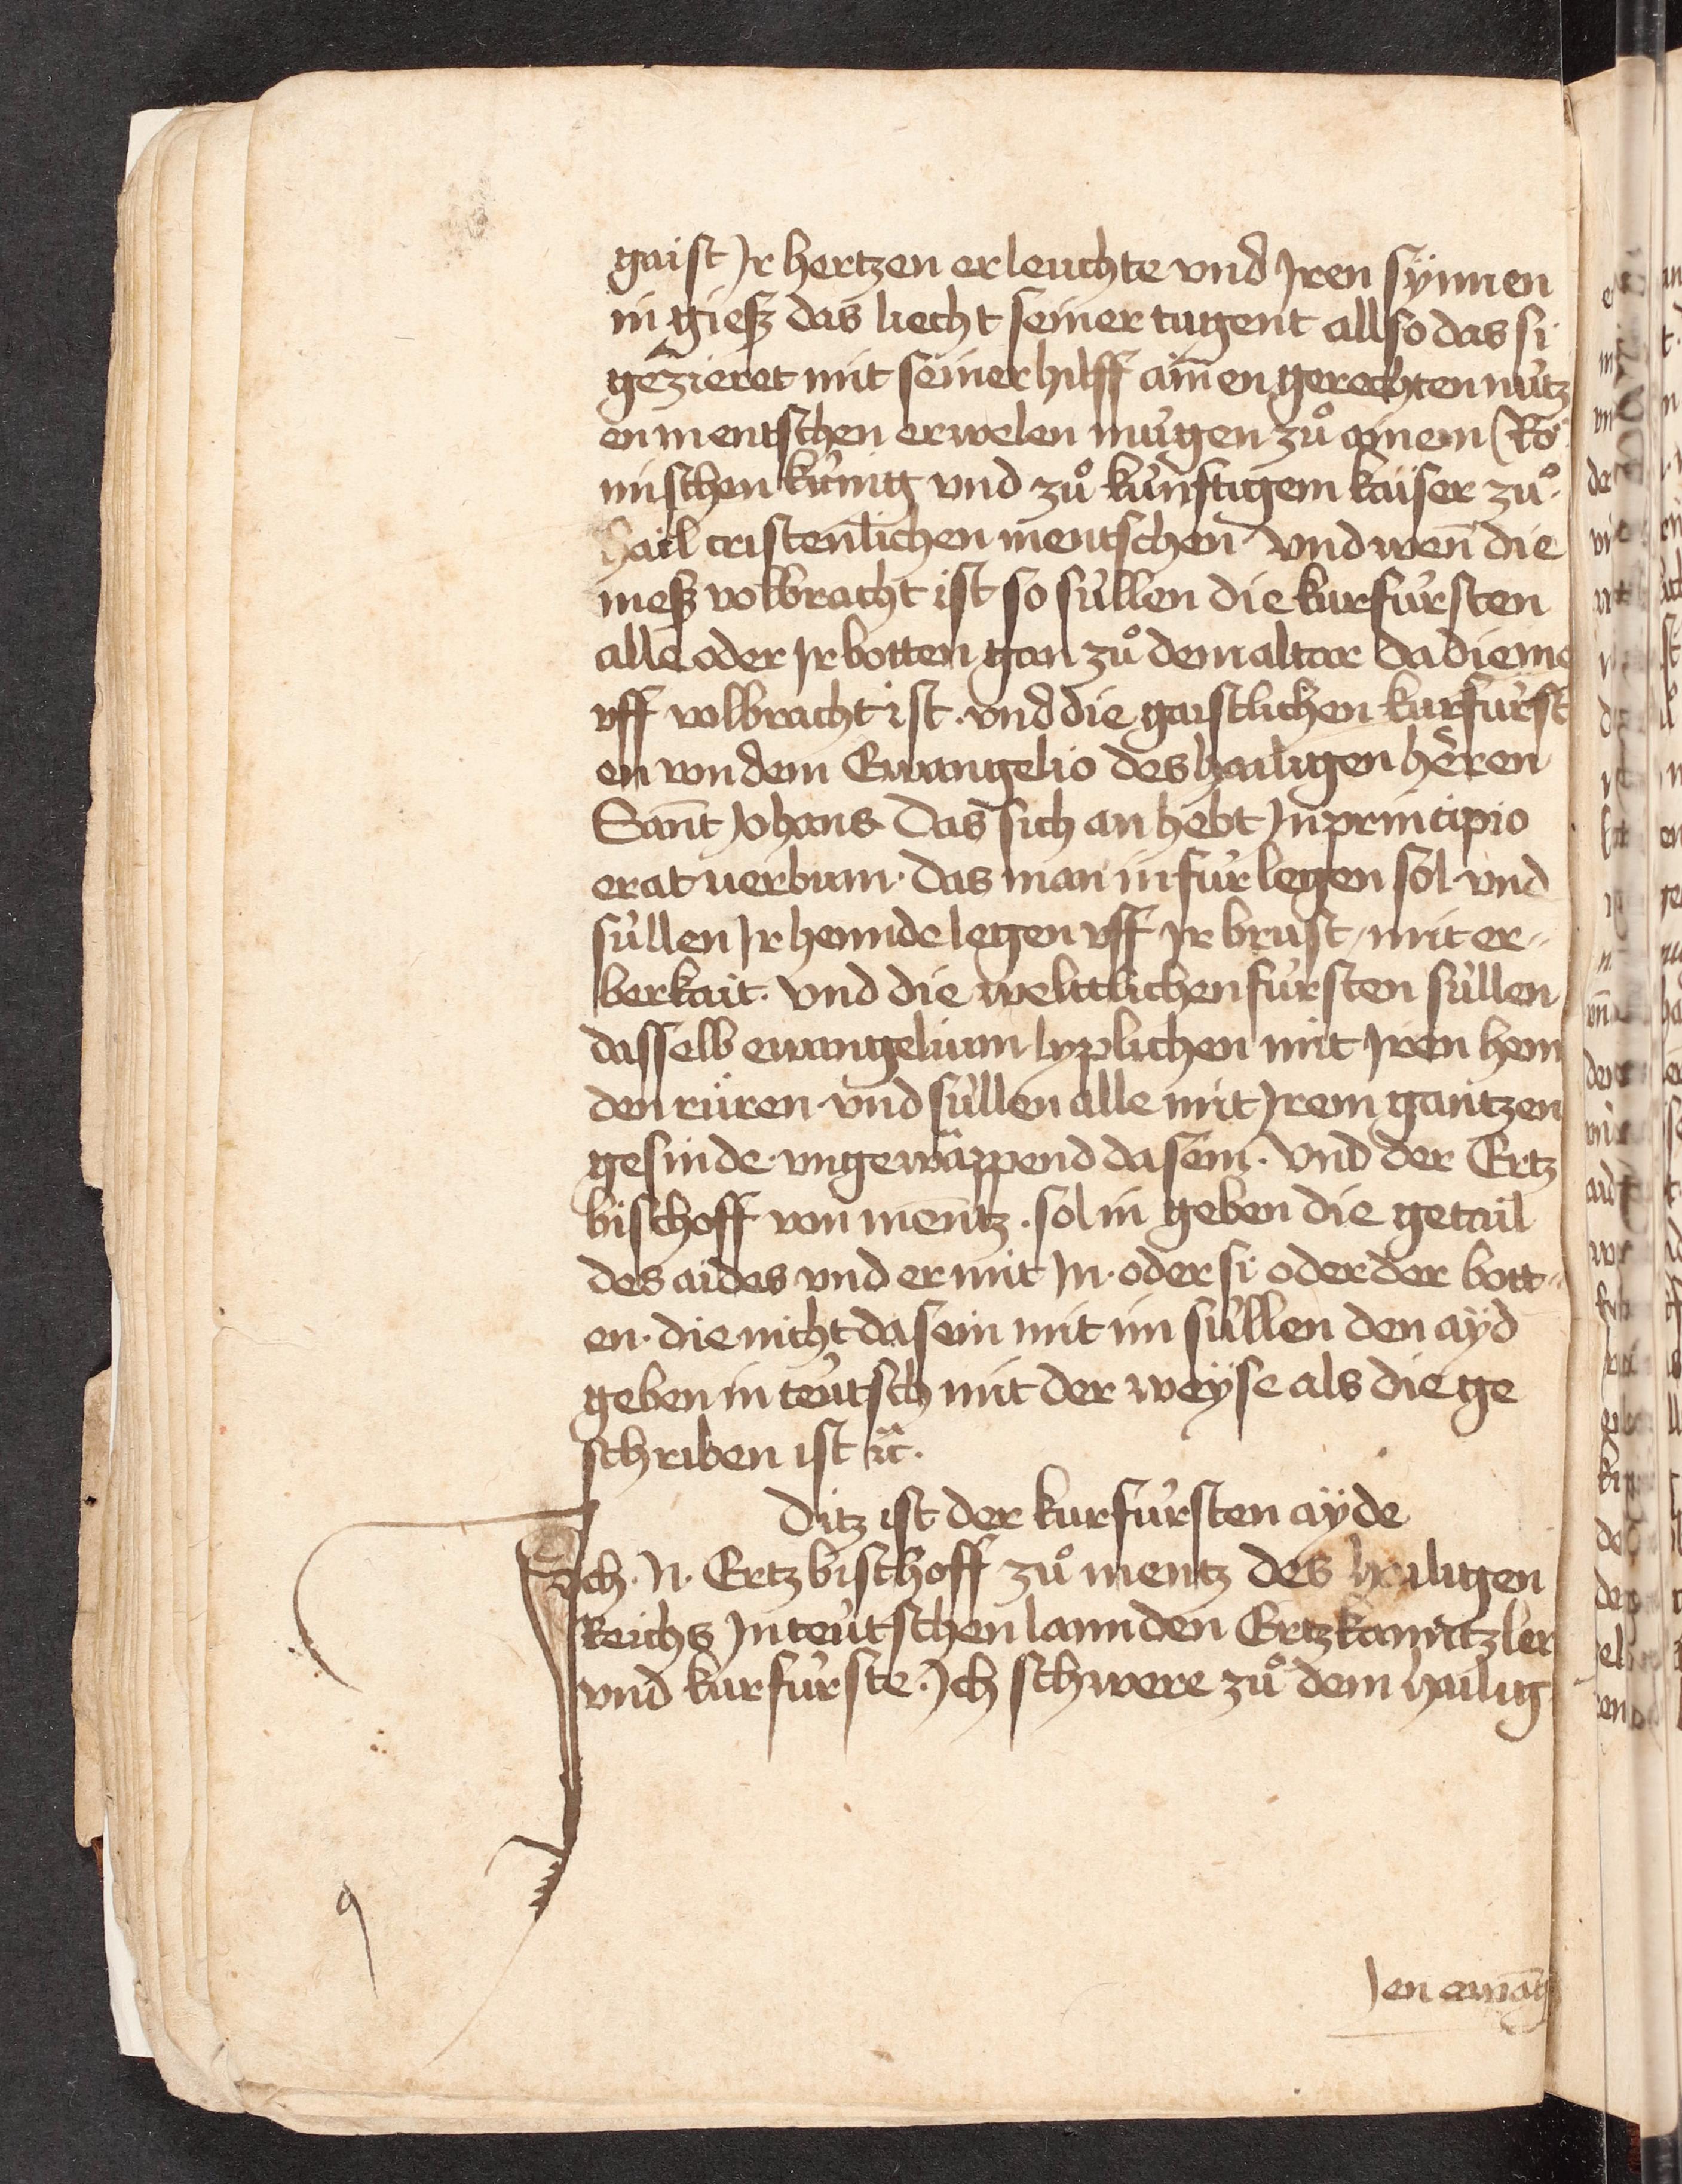 gaist Jr hertzen erleuchte vnd Jren sÿnnen
in gieß das liecht seiner tugent allso das si
gezieret mit seiner hilff ainen gerechten nutz
en mentschen erwelen mügen zů ainem Rö
mischen künig vnd zů künftigem kaiser zů
hail cristenlichen mentschen vnd wen̄ die
meß volbracht ist so süllen die kurfürsten
alle oder Jr botten gan zů dem altar da die me
vff volbracht ist. vnd die gaistlichen kurfürst
en von dem Ewangelio des hailigen heren
Sant Johans das sich an hebt Jn principio
erat uerbum. das man in für legen sol vnd
süllen Jr hennde legen vff Jr brust / mit er„
berkait. vnd die welttlichen fürsten süllen
dasselb ewangelium lyplichen mit Jren henn
den rüren vnd süllen alle mit Jrem gantzen
gesinde. vngewäppend da sein. vnd der Ertz
bischoff von mentz. sol in geben die getail
des aides vnd er mit Jn. oder si oder der bott„
en. die nicht da sein mit im süllen den aÿd
geben in teütsch mit der weÿse als die ge
schriben ist ꝛc̄.
Ditz ist der kurfürsten aÿde
Jch. N. Ertzbischoff zů mentz des hailigen
Reichs Jn teütschen lannden Ertzkanntzler
vnd kurfürste. Jch schwere zů dem hailig
en ewāg